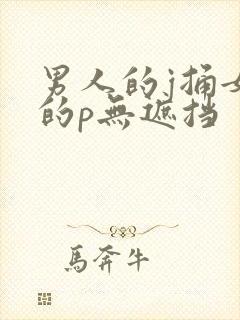 男人的j捅女
的p無遮挡
馬奔牛